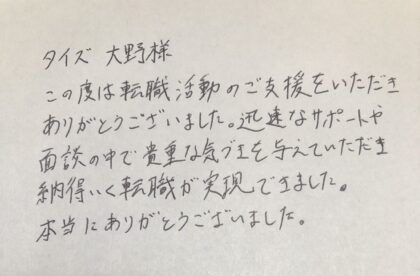 タイズ 大野様
この度は転職活動のご支援をいただき
ありがとうございました。迅速なサポートや
面談の中で貴重な気づきを与えていただき
納得いく転職が実現できました。
本当にありがとうございました。